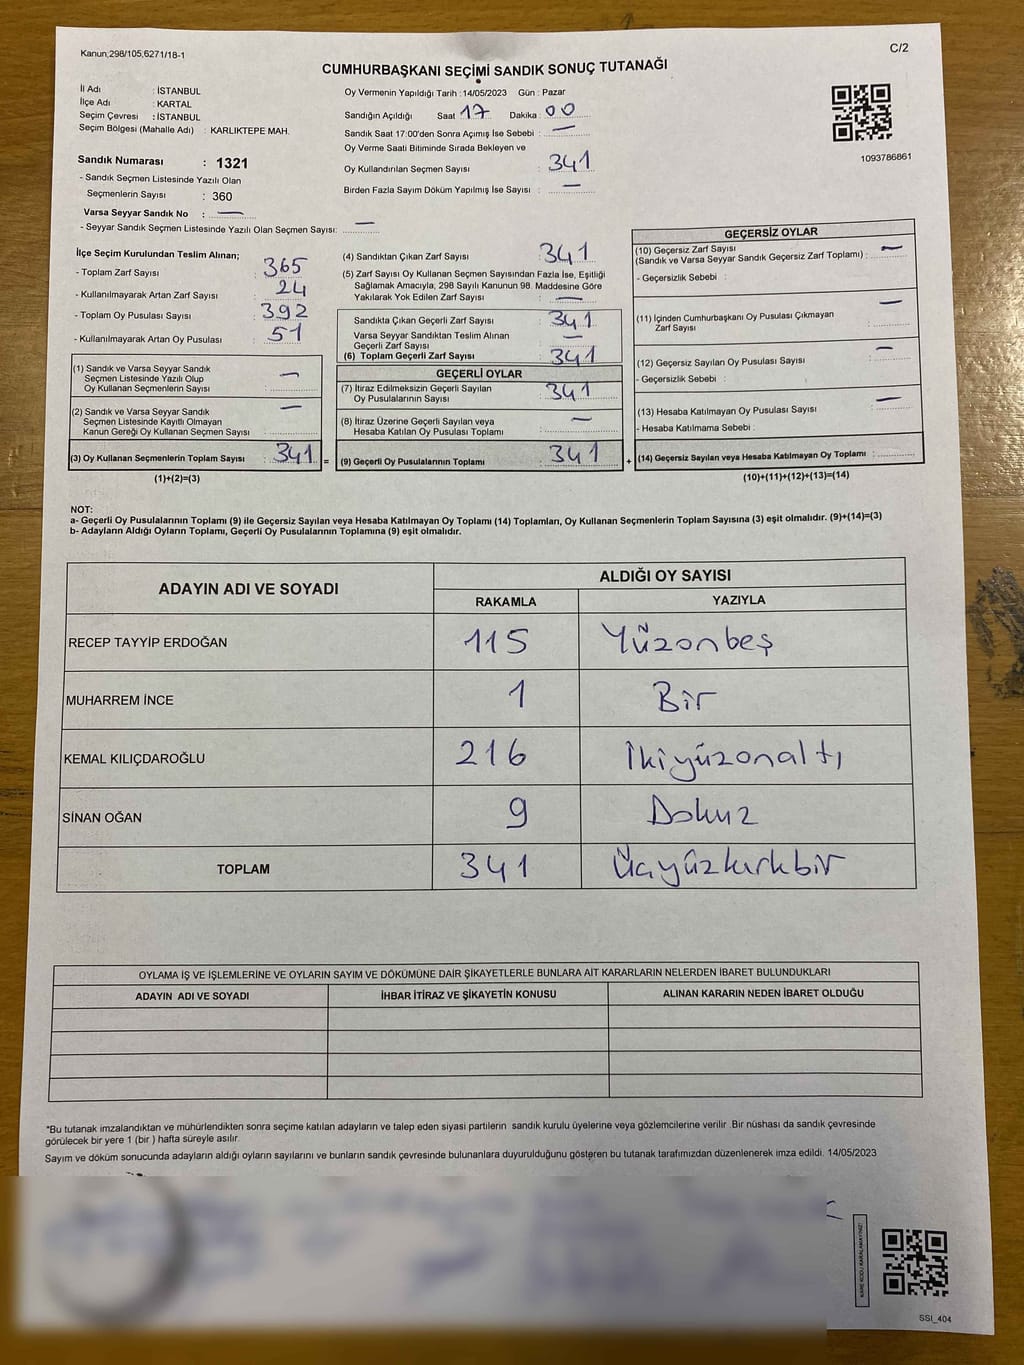 Kanun,298/105,6271/18-1
C/2
CUMHURBAŞKANI SEÇİMİ SANDIK SONUÇ TUTANAĞI
İl Adı : İSTANBUL
İlçe Adı : KARTAL
Seçim Çevresi : İSTANBUL
Seçim Bölgesi (Mahalle Adı) : KARLIKTEPE MAH.
Oy Vermenin Yapıldığı Tarih : 14/05/2023 Gün : Pazar
Sandığın Açıldığı Saat 17 Dakika : 00
Sandık Saat 17:00'den Sonra Açımış İse Sebebi : —
Oy Verme Saati Bitiminde Sırada Bekleyen ve
Oy Kullandırılan Seçmen Sayısı : 341
Birden Fazla Sayım Döküm Yapılmış İse Sayısı : —
1093786861
Sandık Numarası : 1321
- Sandık Seçmen Listesinde Yazılı Olan
Seçmenlerin Sayısı : 360
Varsa Seyyar Sandık No : —
- Seyyar Sandık Seçmen Listesinde Yazılı Olan Seçmen Sayısı: —
İlçe Seçim Kurulundan Teslim Alınan;
- Toplam Zarf Sayısı : 365
- Kullanılmayarak Artan Zarf Sayısı : 24
- Toplam Oy Pusulası Sayısı : 392
- Kullanılmayarak Artan Oy Pusulası : 51
(1) Sandık ve Varsa Seyyar Sandık
Seçmen Listesinde Yazılı Olup
Oy Kullanan Seçmenlerin Sayısı : —
(2) Sandık ve Varsa Seyyar Sandık
Seçmen Listesinde Kayıtlı Olmayan
Kanun Gereği Oy Kullanan Seçmen Sayısı : —
(3) Oy Kullanan Seçmenlerin Toplam Sayısı : 341 =
(1)+(2)=(3)
(4) Sandıktan Çıkan Zarf Sayısı : 341
(5) Zarf Sayısı Oy Kullanan Seçmen Sayısından Fazla İse, Eşitliği
Sağlamak Amacıyla, 298 Sayılı Kanunun 98. Maddesine Göre
Yakılarak Yok Edilen Zarf Sayısı : —
Sandıkta Çıkan Geçerli Zarf Sayısı : 341
Varsa Seyyar Sandıktan Teslim Alınan
Geçerli Zarf Sayısı : —
(6) Toplam Geçerli Zarf Sayısı : 341
GEÇERLİ OYLAR
(7) İtiraz Edilmeksizin Geçerli Sayılan
Oy Pusulalarının Sayısı : 341
(8) İtiraz Üzerine Geçerli Sayılan veya
Hesaba Katılan Oy Pusulası Toplamı : —
(9) Geçerli Oy Pusulalarının Toplamı : 341 +
GEÇERSİZ OYLAR
(10) Geçersiz Zarf Sayısı
(Sandık ve Varsa Seyyar Sandık Geçersiz Zarf Toplamı) : —
- Geçersizlik Sebebi :
(11) İçinden Cumhurbaşkanı Oy Pusulası Çıkmayan
Zarf Sayısı : —
(12) Geçersiz Sayılan Oy Pusulası Sayısı : —
- Geçersizlik Sebebi :
(13) Hesaba Katılmayan Oy Pusulası Sayısı : —
- Hesaba Katılmama Sebebi :
(14) Geçersiz Sayılan veya Hesaba Katılmayan Oy Toplamı :
(10)+(11)+(12)+(13)=(14)
NOT:
a- Geçerli Oy Pusulalarının Toplamı (9) ile Geçersiz Sayılan veya Hesaba Katılmayan Oy Toplamı (14) Toplamları, Oy Kullanan Seçmenlerin Toplam Sayısına (3) eşit olmalıdır. (9)+(14)=(3)
b- Adayların Aldığı Oyların Toplamı, Geçerli Oy Pusulalarının Toplamına (9) eşit olmalıdır.
ADAYIN ADI VE SOYADI
ALDIĞI OY SAYISI
RAKAMLA YAZIYLA
RECEP TAYYİP ERDOĞAN 115 Yüzonbeş
MUHARREM İNCE 1 Bir
KEMAL KILIÇDAROĞLU 216 İkiyüzonaltı
SİNAN OĞAN 9 Dokuz
TOPLAM 341 Üçyüzkırkbir
OYLAMA İŞ VE İŞLEMLERİNE VE OYLARIN SAYIM VE DÖKÜMÜNE DAİR ŞİKAYETLERLE BUNLARA AİT KARARLARIN NELERDEN İBARET BULUNDUKLARI
ADAYIN ADI VE SOYADI İHBAR İTİRAZ VE ŞİKAYETİN KONUSU ALINAN KARARIN NEDEN İBARET OLDUĞU
*Bu tutanak imzalandıktan ve mühürlendikten sonra seçime katılan adayların ve talep eden siyasi partilerin sandık kurulu üyelerine veya gözlemcilerine verilir .Bir nüshası da sandık çevresinde
görülecek bir yere 1 (bir ) hafta süreyle asılır.
Sayım ve döküm sonucunda adayların aldığı oyların sayılarını ve bunların sandık çevresinde bulunanlara duyurulduğunu gösteren bu tutanak tarafımızdan düzenlenerek imza edildi. 14/05/2023
KARE KODU KARALAMAYINIZ!
SSI_404